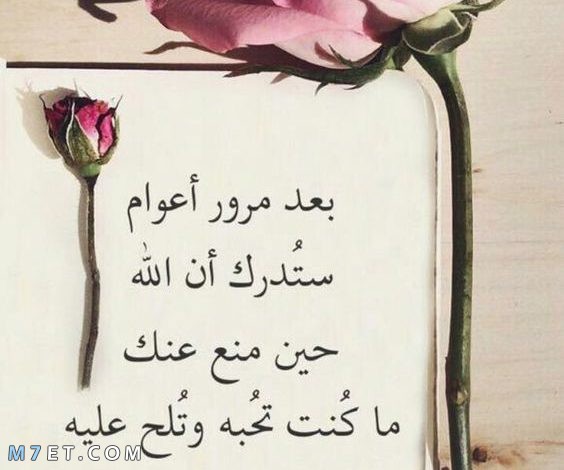 بعد مرور أعوام
ستُدرك أن الله
حين منع عنك
ما كُنت تحُبه وتُلح عليه
M7ET.COM